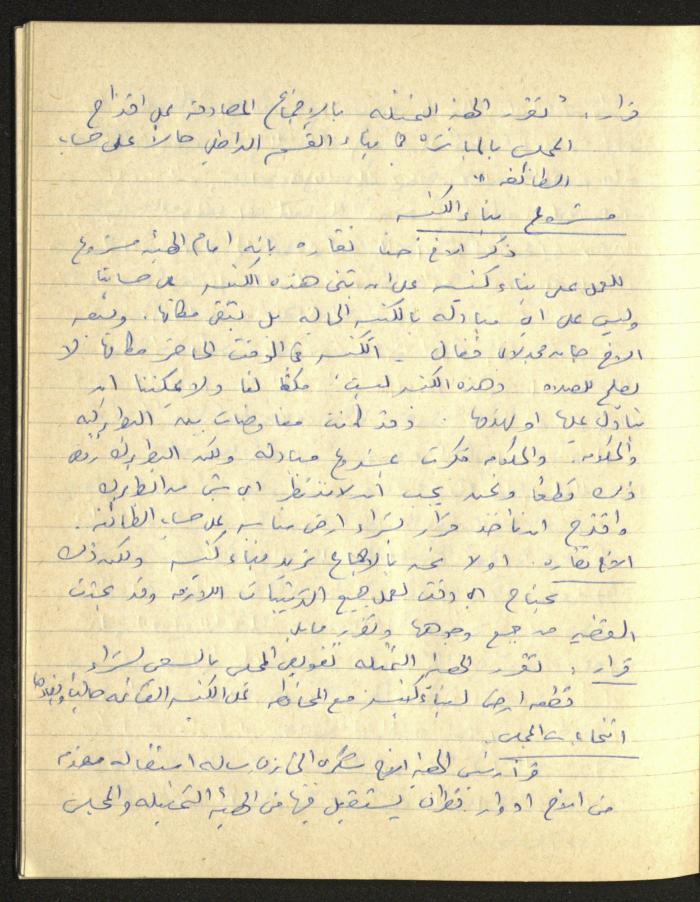 قرار: "تقرر الهيئة التمثيلية بالاجماع المصادقة على اقتراح
المجلس بالمباشرة في بناء القسم الداخلي حالاً على حساب
الطائفة".
مشروع بناء الكنيسة
ذكر الاخ حنا نقاره بانه امام الهيئة مشروع
للعمل على بناء كنيسة على ان تبنى هذه الكنيسة على حسابنا
وليس على ان مبادلة بالكنيسة الحالية بل تبقى مكانها.
الاخ فقال - الكنيسة في الوقت الحاضر مكانها لا
يصلح للصلاه وهذه الكنيسة ليست ملكاً لنا ولا يمكننا ان
نبادل عليها او نهدمها. وقد كانت مفاوضات بين البطريركيه
والحكومه. والحكومه فكرت بمشروع مبادلة ولكن البطريرك رفض
ذلك قطعًا ونحن يجب ان لا ننتظر اي شي من البطريرك
واقترح ان نأخذ قرار لشراء ارض مناسبه على حساب الطائفة.
الاخ نقاره: اولا نحن بالاجماع نريد بناء كنيسة ولكن ذلك
يحتاج الى وقت لعمل جميع الترتيبات اللازمه وقد بحثت
القضية من جميع وجوهها وتقرر مايلي
قرار: تقرر الهيئة التمثيلية تفويض المجلس بالسعي لشراء
قطعه ارض لبناء كنيسة مع المحافظه على الكنيسة القائمه حالياً
انتخابات المجلس
قرأ رئيس الهيئة الاخ شكري الخازن رساله استقاله مقدمه
من الاخ ادوار قطران يستقيل فيها من الهيئة التمثيلية والمجلس